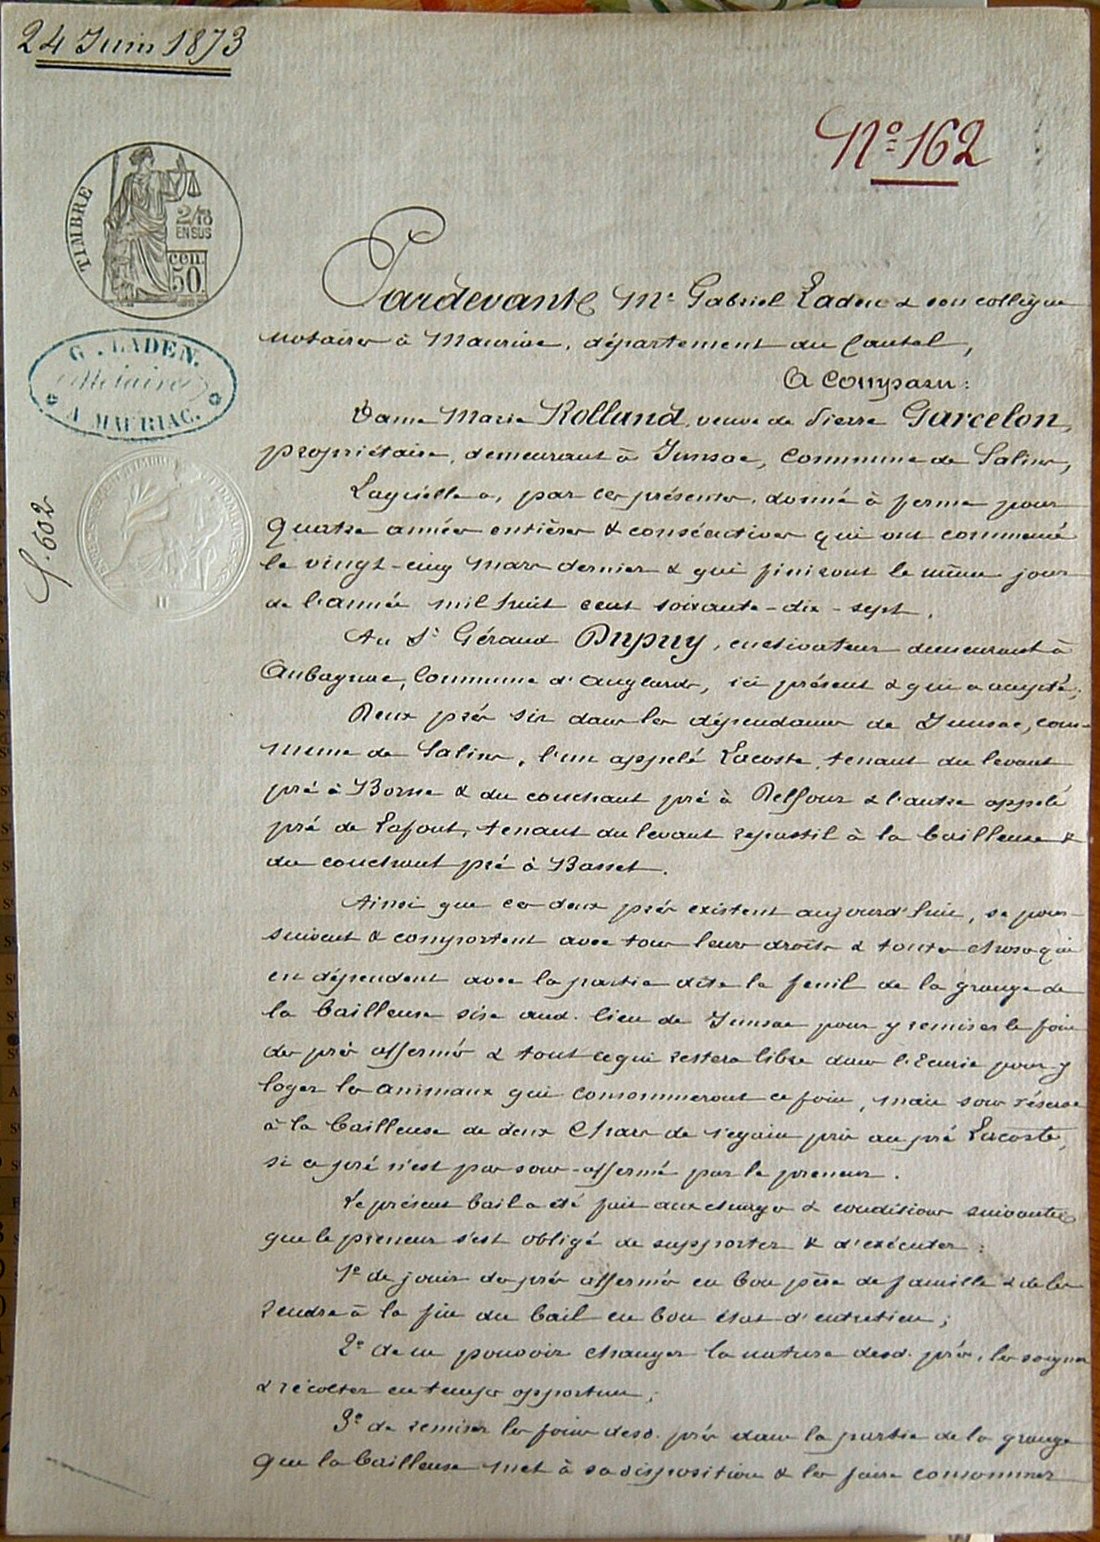 24 Juin 1873
N° 162
TIMBRE
2/10
EN SUS
cen.
50.
G. LADEN.
Notaire
A MAURIAC.
Pardevant Me Gabriel Laden & son collègue
notaires à Mauriac, département du Cantal,
A comparu:
Dame Marie Rolland, veuve de Pierre Garcelon,
propriétaire, demeurant à Junsac, commune de Salins,
Laquelle a, par ces présentes, donné à ferme pour
quatre années entières & consécutives qui ont commencé
le vingt-cinq mars dernier & qui finiront le même jour
de l'année mil huit cent soixante-dix-sept.
Au Sr Géraud Dupuy, cultivateur demeurant à
Aubagnac, commune d'Anglards, ici présent & qui a accepté;
Deux prés sis dans les dépendances de Junsac, com-
mune de Salins, l'un appelé Lacoste, tenant du levant
pré à Borne & du couchant pré à Delfour & l'autre appelé
pré de Lafont, tenant du levant repastil à la bailleuse &
du couchant pré à Basset.
Ainsi que ces deux prés existent aujourd'hui, se pour-
suivent & comportent avec tous leurs droits & toutes choses qui
en dépendent avec la partie dite le fenil de la grange de
la bailleuse sise aud. lieu de Junsac pour y remiser le foin
des prés affermés & tout ce qui restera libre dans l'écurie pour y
loger les animaux qui consommeront ce foin, mais sous réserve
à la bailleuse de deux chars de regain pris au pré Lacoste,
si ce pré n'est pas sous-affermé par le preneur.
Le présent bail a été fait aux charges & conditions suivantes
que le preneur s'est obligé de supporter & d'exécuter:
1° de jouir des prés affermés en bon père de famille & de les
rendre à la fin du bail en bon état d'entretien;
2° de ne pouvoir changer la nature desd. prés, les soigner
& récolter en temps opportun;
3° de remiser les foins desd. prés dans la partie de la grange
que la bailleuse met à sa disposition & les faire consommer